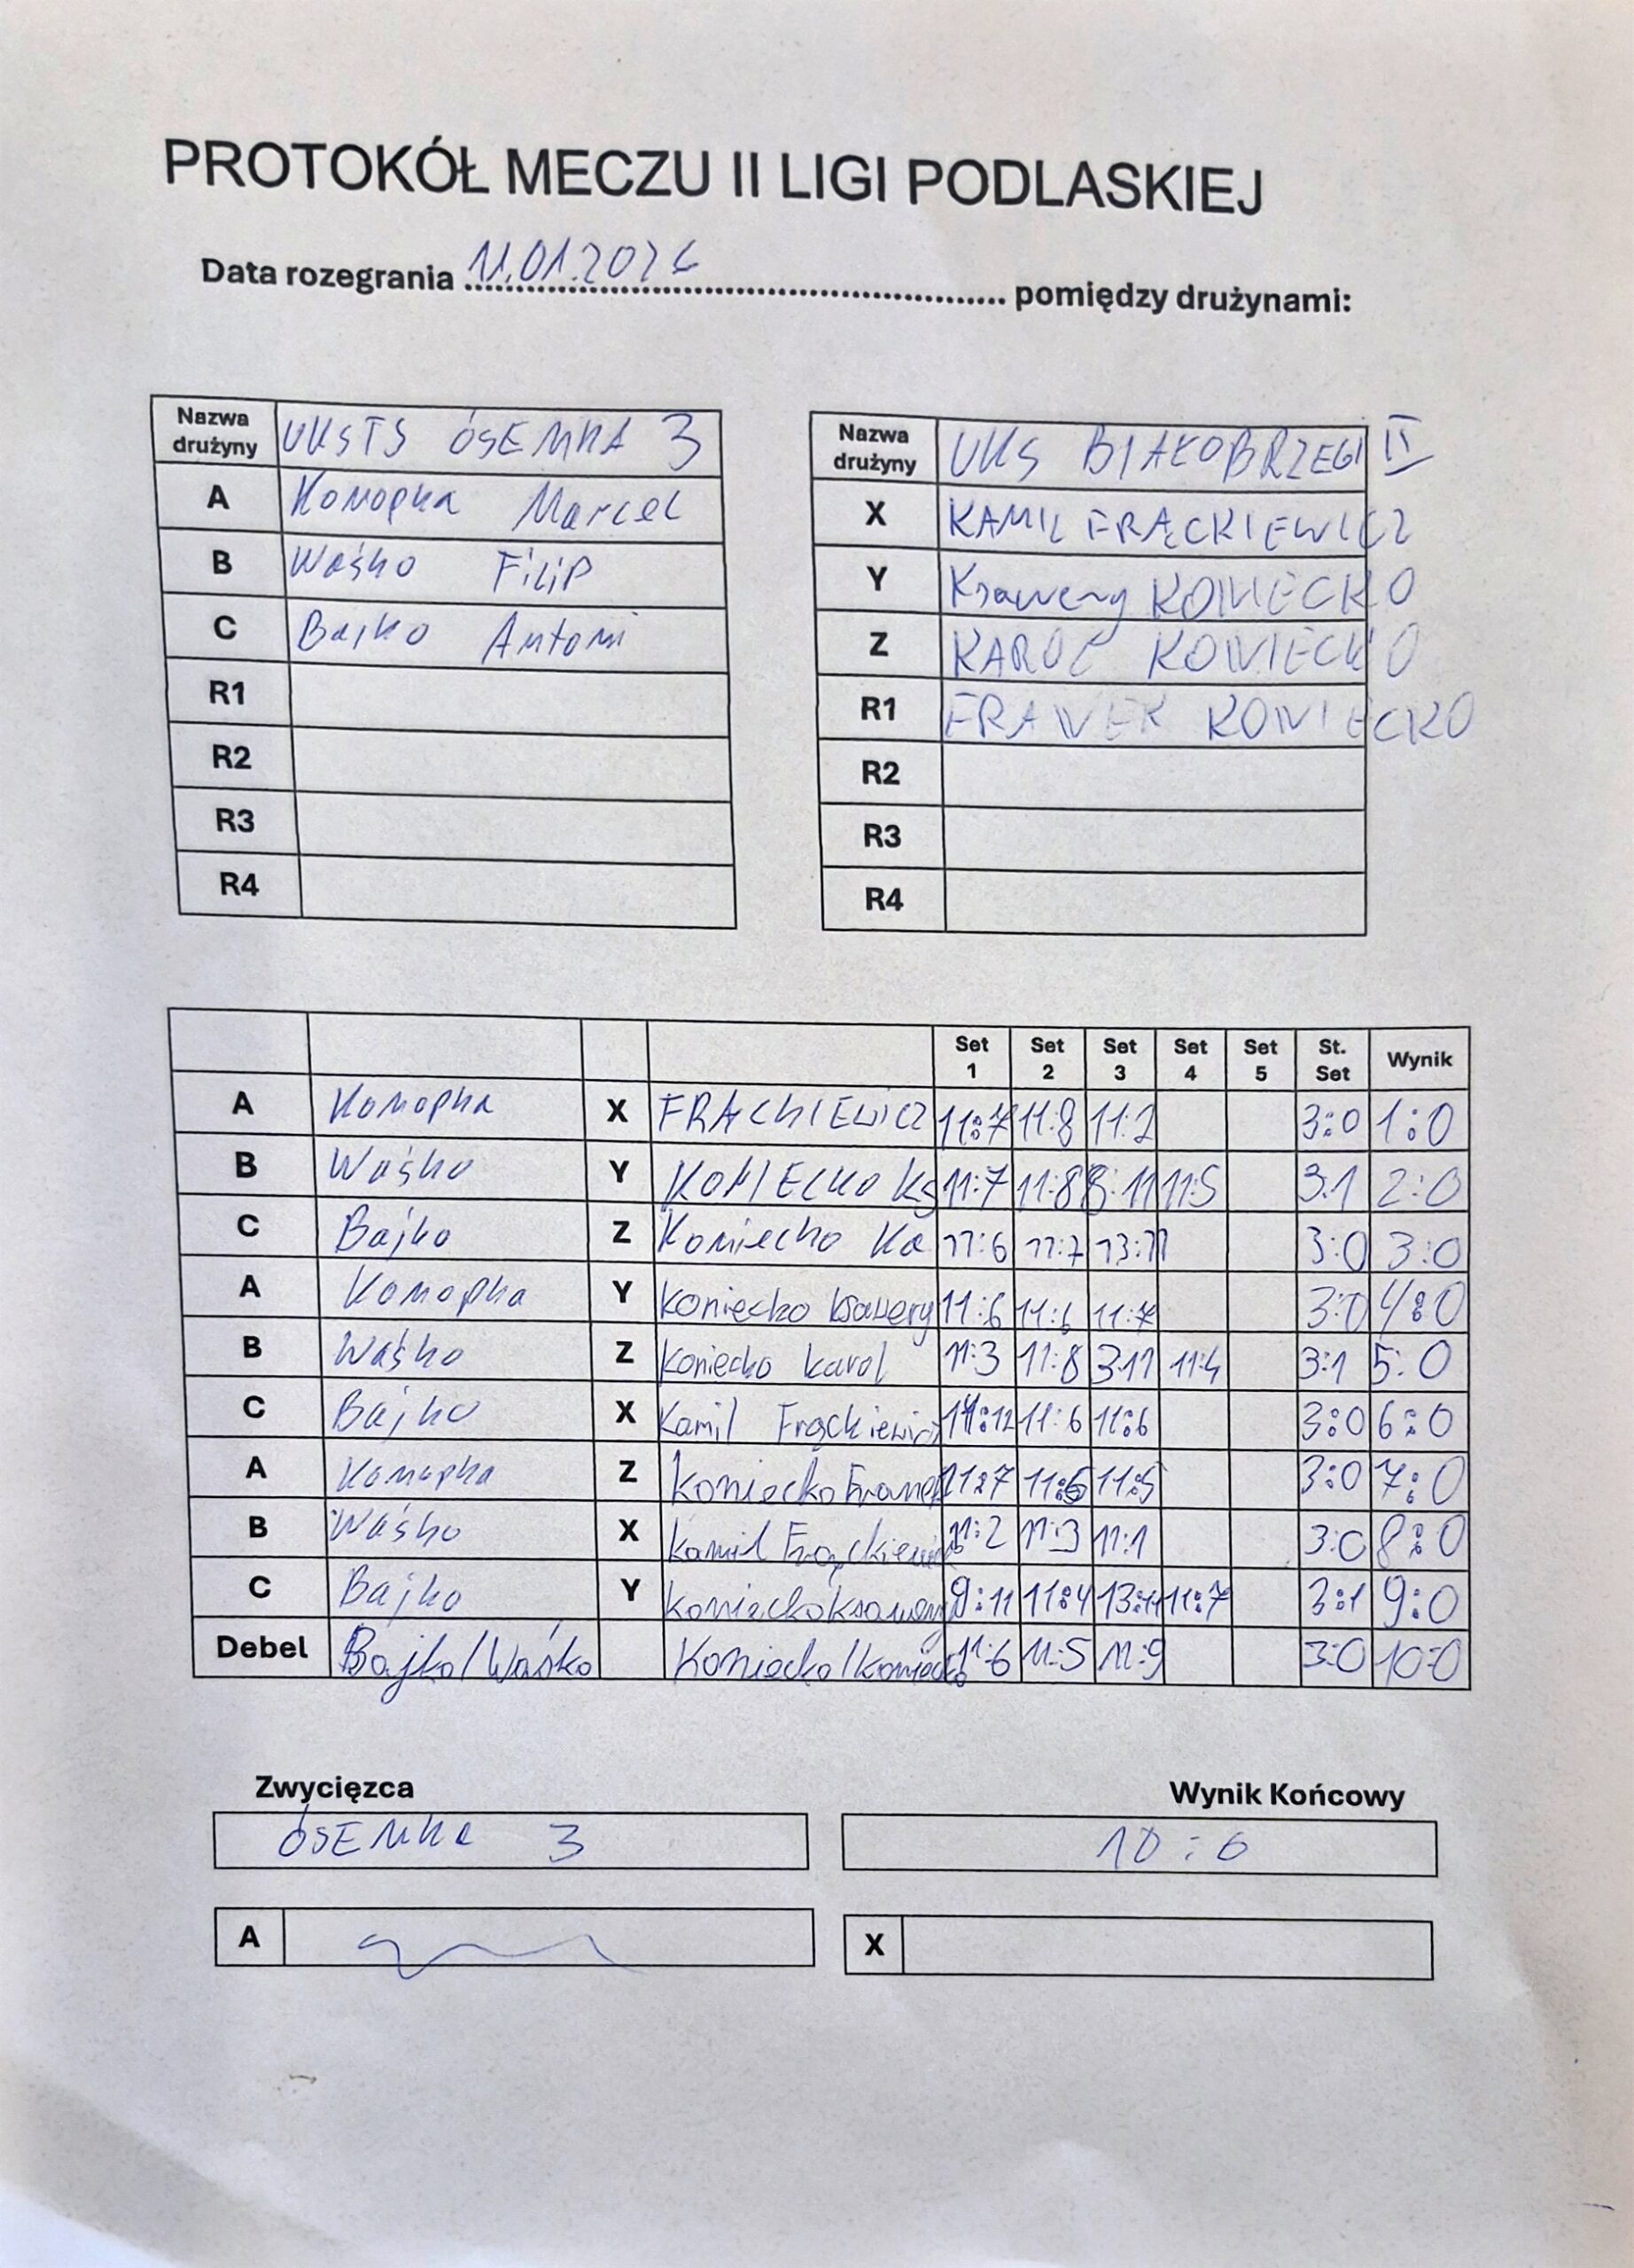 PROTOKÓŁ MECZU II LIGI PODLASKIEJ
Data rozegrania 11.01.2026 pomiędzy drużynami:
Nazwa drużyny UKSTS ÓSEMKA 3
A Konopka Marcel
B Waśko Filip
C Bajko Antoni
R1
R2
R3
R4
Nazwa drużyny UKS BIAŁOBRZEGI II
X KAMIL FRĄCKIEWICZ
Y Ksawery KONIECKO
Z KAROL KONIECKO
R1 FRANEK KONIECKO
R2
R3
R4
Set 1 Set 2 Set 3 Set 4 Set 5 St. Set Wynik
A Konopka X FRĄCKIEWICZ 11:7 11:8 11:2 3:0 1:0
B Waśko Y KONIECKO Ks 11:7 11:8 8:11 11:5 3:1 2:0
C Bajko Z Koniecko Ka 11:6 11:7 13:11 3:0 3:0
A Konopka Y Koniecko Ksawery 11:6 11:6 11:7 3:0 4:0
B Waśko Z Koniecko karol 11:3 11:8 3:11 11:4 3:1 5:0
C Bajko X Kamil Frąckiewicz 14:12 11:6 11:6 3:0 6:0
A Konopka Z Koniecko Franek 11:7 11:6 11:5 3:0 7:0
B Waśko X Kamil Frąckiewicz 11:2 11:3 11:1 3:0 8:0
C Bajko Y Koniecko Ksawery 9:11 11:4 13:11 11:7 3:1 9:0
Debel Bajko/Waśko Koniecko/Koniecko 11:6 11:5 11:9 3:0 10:0
Zwycięzca Wynik Końcowy
ÓSEMKA 3 10:0
A X